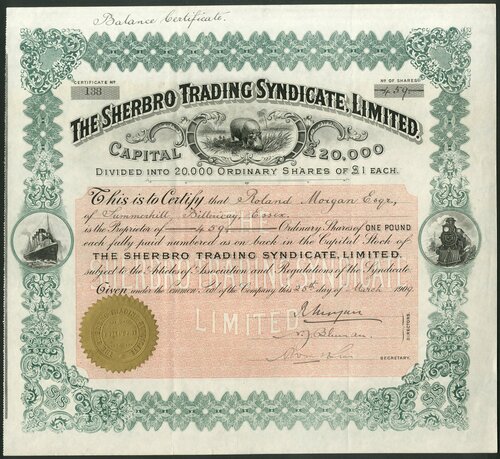 Balance Certificate.
CERTIFICATE Nº
138
Nº OF SHARES
459
THE SHERBRO TRADING SYNDICATE, LIMITED.
CAPITAL £20,000
DIVIDED INTO 20,000 ORDINARY SHARES OF £1 EACH.
This is to Certify that Roland Morgan Esqr,
of Summerhill, Billericay, Essex.
is the Proprietor of 459 Ordinary Shares of ONE POUND
each fully paid numbered as on back in the Capital Stock of
THE SHERBRO TRADING SYNDICATE, LIMITED.
subject to the Articles of Association and Regulations of the Syndicate.
Given under the Common Seal of the Company this 25th day of March 1909
LIMITED
DIRECTORS.
SECRETARY.